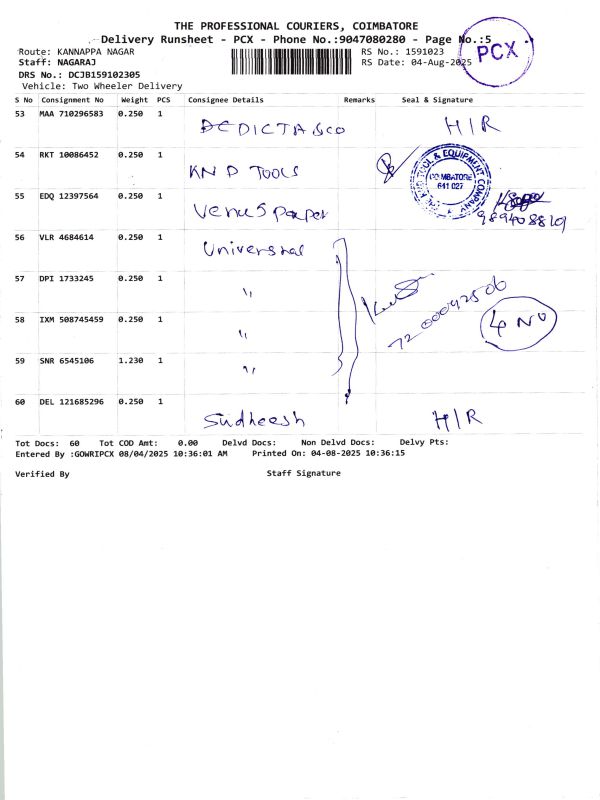 THE PROFESSIONAL COURIERS, COIMBATORE
Delivery Runsheet - PCX - Phone No.:9047080280 - Page No.:5
PCX
Route: KANNAPPA NAGAR RS No.: 1591023
Staff: NAGARAJ RS Date: 04-Aug-2025
DRS No.: DCJB159102305
Vehicle: Two Wheeler Delivery
S No Consignment No Weight PCS Consignee Details Remarks Seal & Signature
53 MAA 710296583 0.250 1 H/R
54 RKT 10086452 0.250 1 KNP TOOLS
& EQUIPMENT COMPANY
COIMBATORE
641 027
55 EDQ 12397564 0.250 1 Venus paper
56 VLR 4684614 0.250 1 Universal
57 DPI 1733245 0.250 1 "
58 IXM 508745459 0.250 1 "
4 NO
59 SNR 6545106 1.230 1 "
60 DEL 121685296 0.250 1 Sudheesh H/R
Tot Docs: 60 Tot COD Amt: 0.00 Delvd Docs: Non Delvd Docs: Delvy Pts:
Entered By :GOWRIPCX 08/04/2025 10:36:01 AM Printed On: 04-08-2025 10:36:15
Verified By Staff Signature